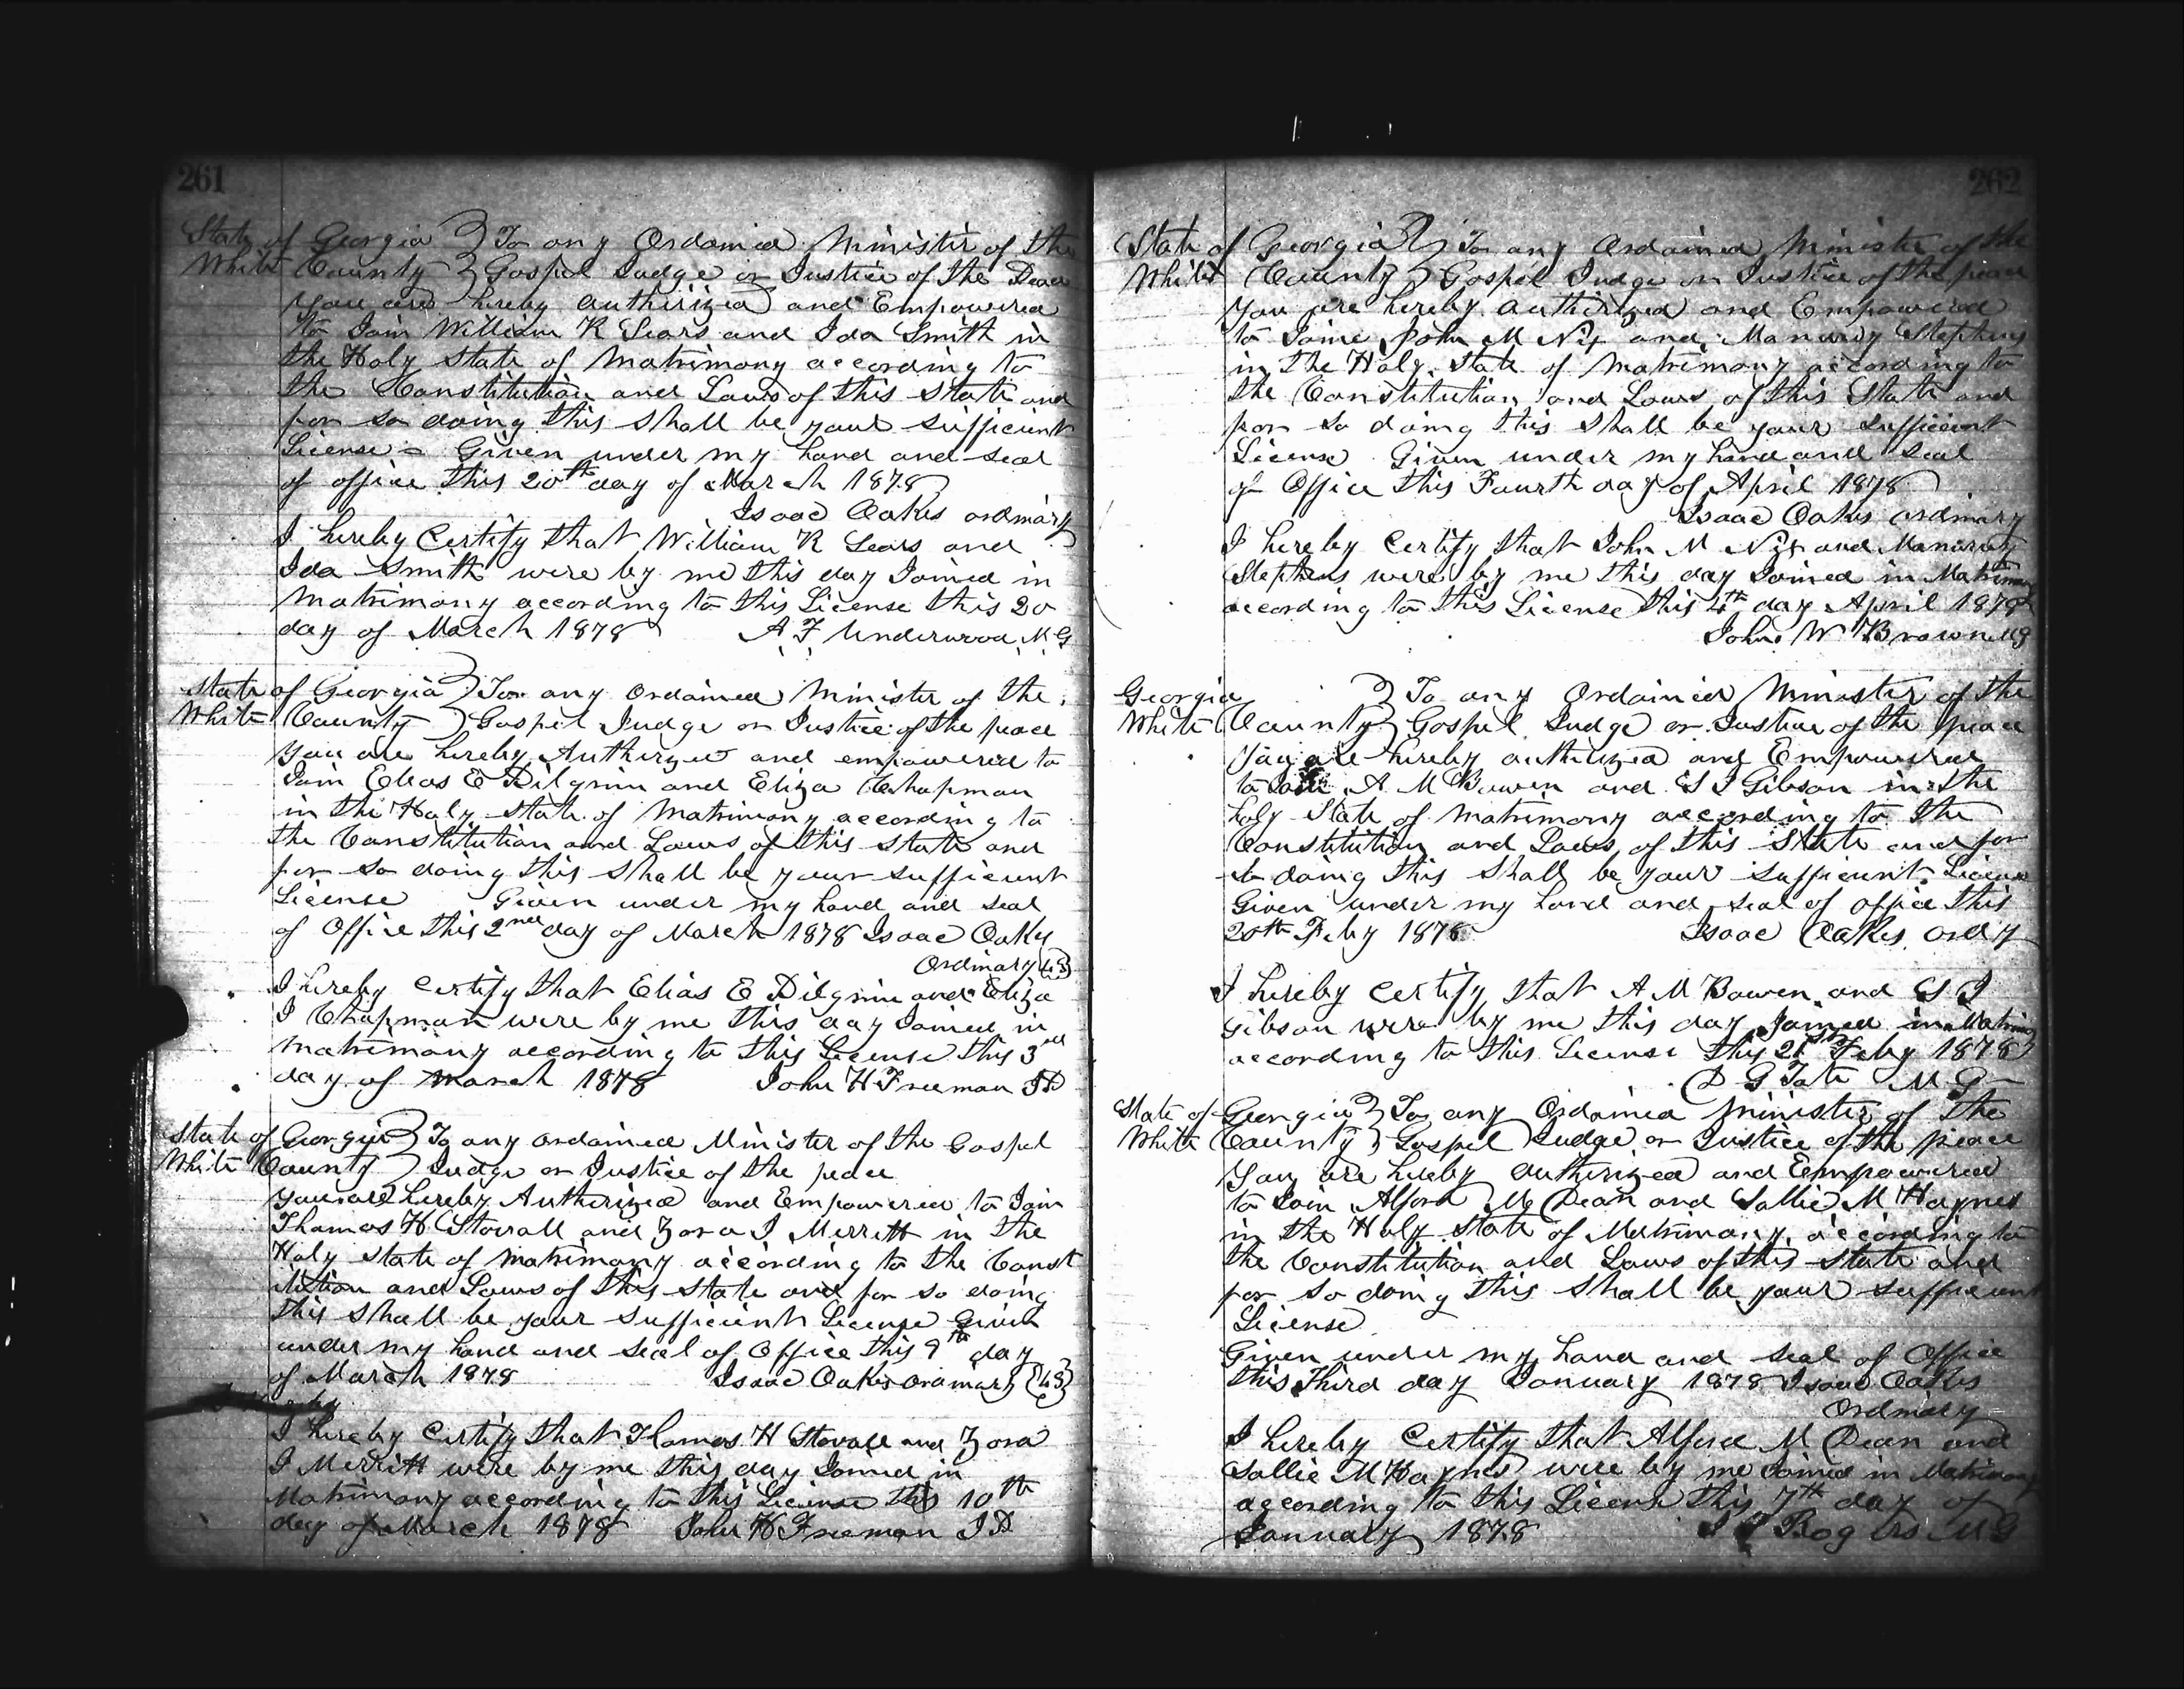 261
State of Georgia } To any Ordained Minister of the
White County } Gospel Judge or Justice of the Peace
You are hereby authirized and Empowered
to Join William R Sears and Ida Smith in
the Holy State of Matrimony according to
the Constitution and Laws of this State and
for so doing this shall be your sufficient
License - Given under my hand and seal
of office this 20th day of March 1878
Isaac Oakes ordinary
I hereby Certify that William R Sears and
Ida Smith were by me this day Joined in
Matrimony according to this License this 20
day of March 1878 A F Underwood M G
State of Georgia } To any Ordained Minister of the
White County } Gospel Judge or Justice of the peace
You are hereby Authirized and empowered to
Join Elias E Pilgrim and Eliza Chapman
in the Holy State of Matrimony according to
the Constitution and Laws of this State and
for so doing this shall be your sufficient
License Given under my hand and seal
of Office this 2nd day of March 1878 Isaac Oakes
Ordinary
I hereby certify that Elias E Pilgrim and Eliza
J Chapman were by me this day Joined in
Matrimony according to this License this 3rd
day of March 1878 John H Freeman J P
State of Georgia } To any ordained Minister of the Gospel
White County } Judge or Justice of the peace
You are hereby Authirized and Empowered to Join
Thomas H Stovall and Zora J Merritt in the
Holy State of Matrimony according to the Const
itution and Laws of this State and for so doing
this shall be your sufficient License Given
under my hand and seal of Office this 9th day
of March 1878 Isaac Oakes ordinary
I hereby Certify that Thomas H Stovall and Zora
J Merritt were by me this day Joined in
Matrimony according to this License this 10th
day of March 1878 John H Freeman J P
262
State of Georgia } To any Ordained Minister of the
White County } Gospel Judge or Justice of the peace
You are hereby authirized and Empowered
to Joine John M Nix and Manurvy Stephens
in the Holy State of Matrimony according to
the Constitution and Laws of this State and
for so doing this shall be your sufficient
License Given under my hand and seal
of Office this Fourth day of April 1878
Isaac Oakes ordinary
I hereby Certify that John M Nix and Manurvy
Stephens were by me this day Joined in Matrimony
according to this License this 4th day April 1878
John W Brown MG
Georgia } To any Ordained Minister of the
White County } Gospel Judge or Justice of the peace
You are hereby authirized and Empowered
to Join A M Bowen and S J Gibson in the
holy State of Matrimony according to the
Constitution and Laws of this State and for
so doing this shall be your sufficient License
Given under my hand and seal of office this
20th Feby 1878 Isaac Oakes ord'y
I hereby Certify that A M Bowen and S J
Gibson were by me this day Joined in Matrimony
according to this License this 21st Feby 1878
G Tate M G
State of Georgia } To any Ordained Minister of the
White County } Gospel Judge or Justice of the peace
You are hereby authirized and Eempowered
to Join Alford M Dean and Sallie M Haynes
in the Holy State of Matrimony according to
the Constitution and Laws of this State and
for so doing this shall be your sufficient
License
Given under my hand and seal of Office
this Third day January 1878 Isaac Oakes
Ordinary
I hereby Certify that Alford M Dean and
Sallie M Haynes were by me Joined in Matrimony
according to this License this 7th day of
January 1878 Rogers M G